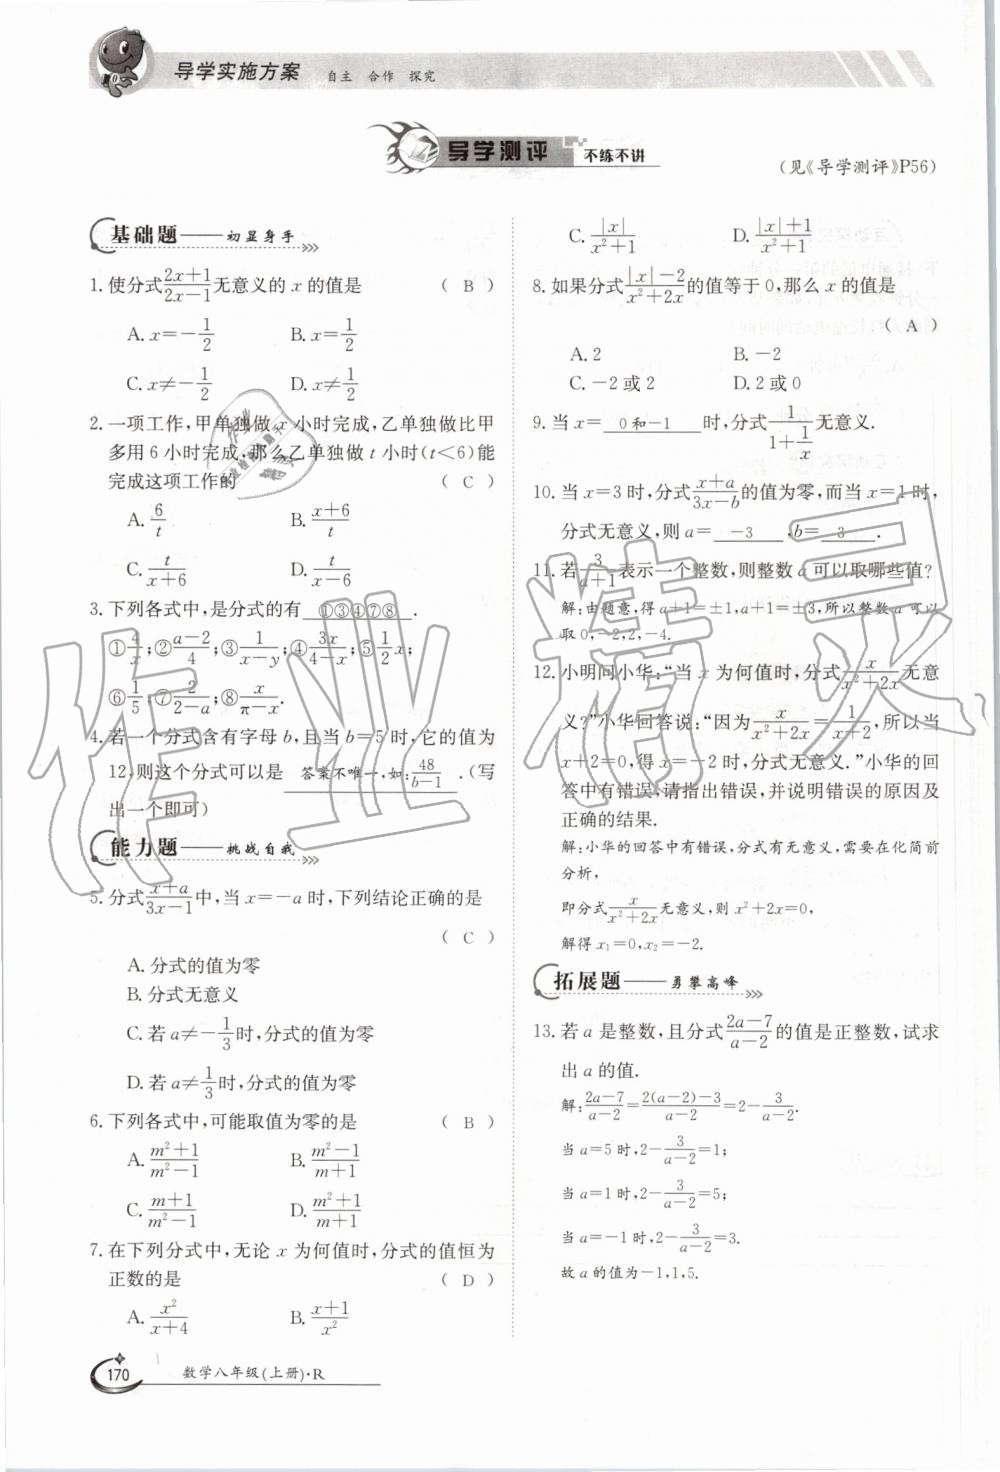 导学实施方案 自主 合作 探究
导学测评 不练不讲
(见《导学测评》P56)
基础题——初显身手
1. 使分式(2x+1)/(2x−1)无意义的 x 的值是 ( B )
A. x=−1/2 B. x=1/2
C. x≠−1/2 D. x≠1/2
2. 一项工作,甲单独做 x 小时完成,乙单独做比甲
多用 6 小时完成,那么乙单独做 t 小时(t<6)能
完成这项工作的 ( C )
A. 6/t B. (x+6)/t
C. t/(x+6) D. t/(x−6)
3. 下列各式中,是分式的有 ①③④⑦⑧ .
①4/x;②(a−2)/4;③1/(x−y);④3x/(4−x);⑤1/2 x;
⑥1/5;⑦2/(2−a);⑧x/(π−x).
4. 若一个分式含有字母 b,且当 b=5 时,它的值为
12,则这个分式可以是 答案不唯一,如:48/(b−1) .(写
出一个即可)
能力题——挑战自我
5. 分式(x+a)/(3x−1)中,当 x=−a 时,下列结论正确的是
( C )
A. 分式的值为零
B. 分式无意义
C. 若 a≠−1/3时,分式的值为零
D. 若 a≠1/3时,分式的值为零
6. 下列各式中,可能取值为零的是 ( B )
A. (m²+1)/(m²−1) B. (m²−1)/(m+1)
C. (m+1)/(m²−1) D. (m²+1)/(m+1)
7. 在下列分式中,无论 x 为何值时,分式的值恒为
正数的是 ( D )
A. x²/(x+4) B. (x+1)/x²
170 数学八年级(上册)·R
C. |x|/(x²+1) D. (|x|+1)/(x²+1)
8. 如果分式(|x|−2)/(x²+2x)的值等于 0,那么 x 的值是
( A )
A. 2 B. −2
C. −2 或 2 D. 2 或 0
9. 当 x= 0 和−1 时,分式1/(1+1/x)无意义.
10. 当 x=3 时,分式(x+a)/(3x−b)的值为零,而当 x=1 时,
分式无意义,则 a= −3 ,b= 3 .
11. 若3/(a+1)表示一个整数,则整数 a 可以取哪些值?
解:由题意,得 a+1=±1,a+1=±3,所以整数 a 可以
取 0,−2,2,−4.
12. 小明问小华:“当 x 为何值时,分式x/(x²+2x)无意
义?”小华回答说:“因为x/(x²+2x)=1/(x+2),所以当
x+2=0,得 x=−2 时,分式无意义.”小华的回
答中有错误,请指出错误,并说明错误的原因及
正确的结果.
解:小华的回答中有错误,分式有无意义,需要在化简前
分析,
即分式x/(x²+2x)无意义,则 x²+2x=0,
解得 x₁=0,x₂=−2.
拓展题——勇攀高峰
13. 若 a 是整数,且分式(2a−7)/(a−2)的值是正整数,试求
出 a 的值.
解:(2a−7)/(a−2)=(2(a−2)−3)/(a−2)=2−3/(a−2).
当 a=5 时,2−3/(a−2)=1;
当 a=1 时,2−3/(a−2)=5;
当 a=−1 时,2−3/(a−2)=3.
故 a 的值为−1,1,5.
作业精灵